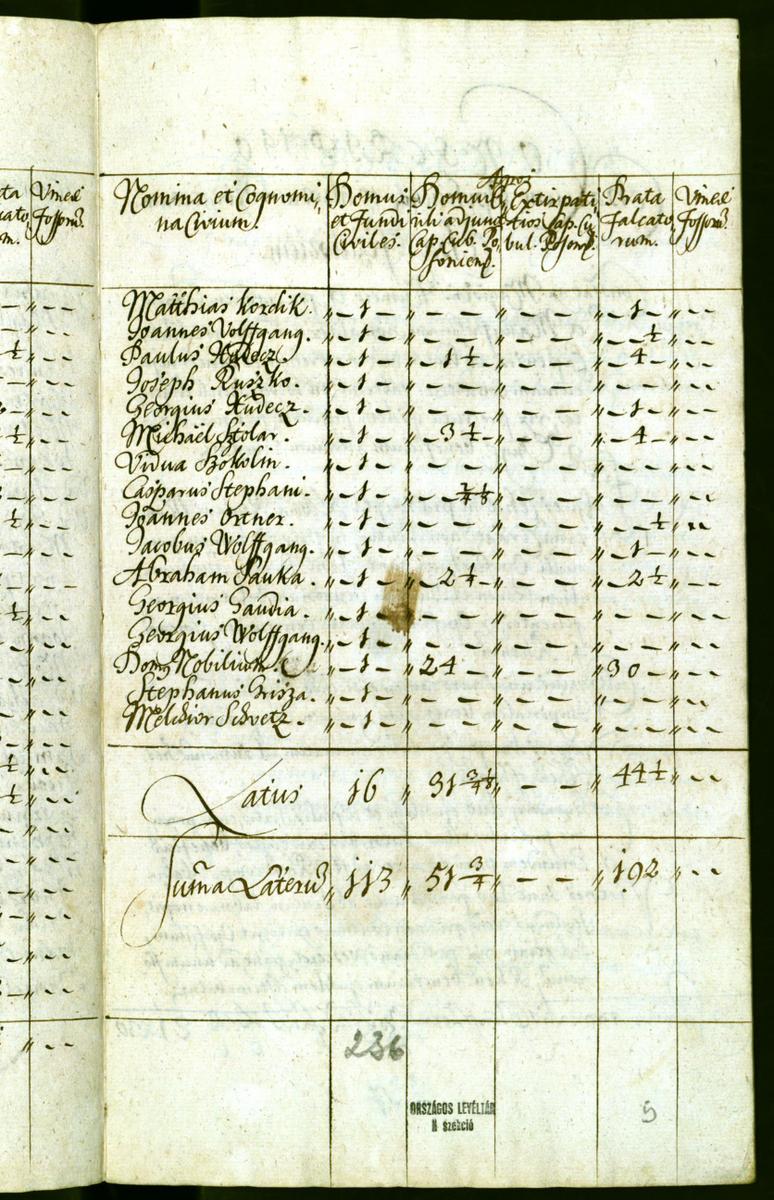 Nomina et Cognomi„ na Civium.
Domus et Fundi Civiles.
Agri
Domui
uli adjunc
Cap. Cub. Po„
Extirpati
Cap. Cu„
bul.
Prata Falcato„ rum.
Vineæ
Matthias Kordik. „ – 1 – „ – – – „ – – „ – 1 – „ – –
Joannes Volffgang. „ – 1 – „ – – – „ – – „ – ½ „ – –
Paulus Hudecz. „ – 1 – „ 1 ½ – „ – – „ – 4 – „ – –
Joseph Ruszko. „ – 1 – „ – – – „ – – „ – – – „ – –
Georgius Hudecz. „ – 1 – „ – – – „ – – „ – 1 – „ – –
Michaël Stolar. „ – 1 – „ – 3 ½ – „ – – „ – 4 – „ – –
Vidua Szokolin. „ – 1 – „ – – – „ – – „ – – – „ – –
Casparus Stephani. „ – 1 – „ – „ – – „ – – – „ – –
Joannes Ortner. „ – 1 – „ – – – „ – – „ – ½ „ – –
Jacobus Wolffgang. „ – 1 – „ – – – „ – – „ – 1 – „ – –
Abraham Pauka. „ – 1 – „ – 2 ¼ – „ – – „ – 2 ½ „ – –
Georgius Gaudia. „ – 1 – „ – – – „ – – „ – – – „ – –
Georgius Wolffgang. „ – 1 – „ – – – „ – – „ – – – „ – –
Nobilium. „ – 1 – „ 24 – „ – – „ 30 – „ – –
Stephanus Grisza. „ – 1 – „ – – – „ – – „ – – – „ – –
Melchior Schvetz. „ – 1 – „ – – – „ – – „ – – – „ – –
Latus 16 „ 31 ¾ ⅛ „ – – „ 44 ½ „ – –
Sum̃a Laterũ „ 113 „ 51 ¾ „ – – „ 192 „ – –
236
ORSZÁGOS LEVÉLTÁR
II szekció
5